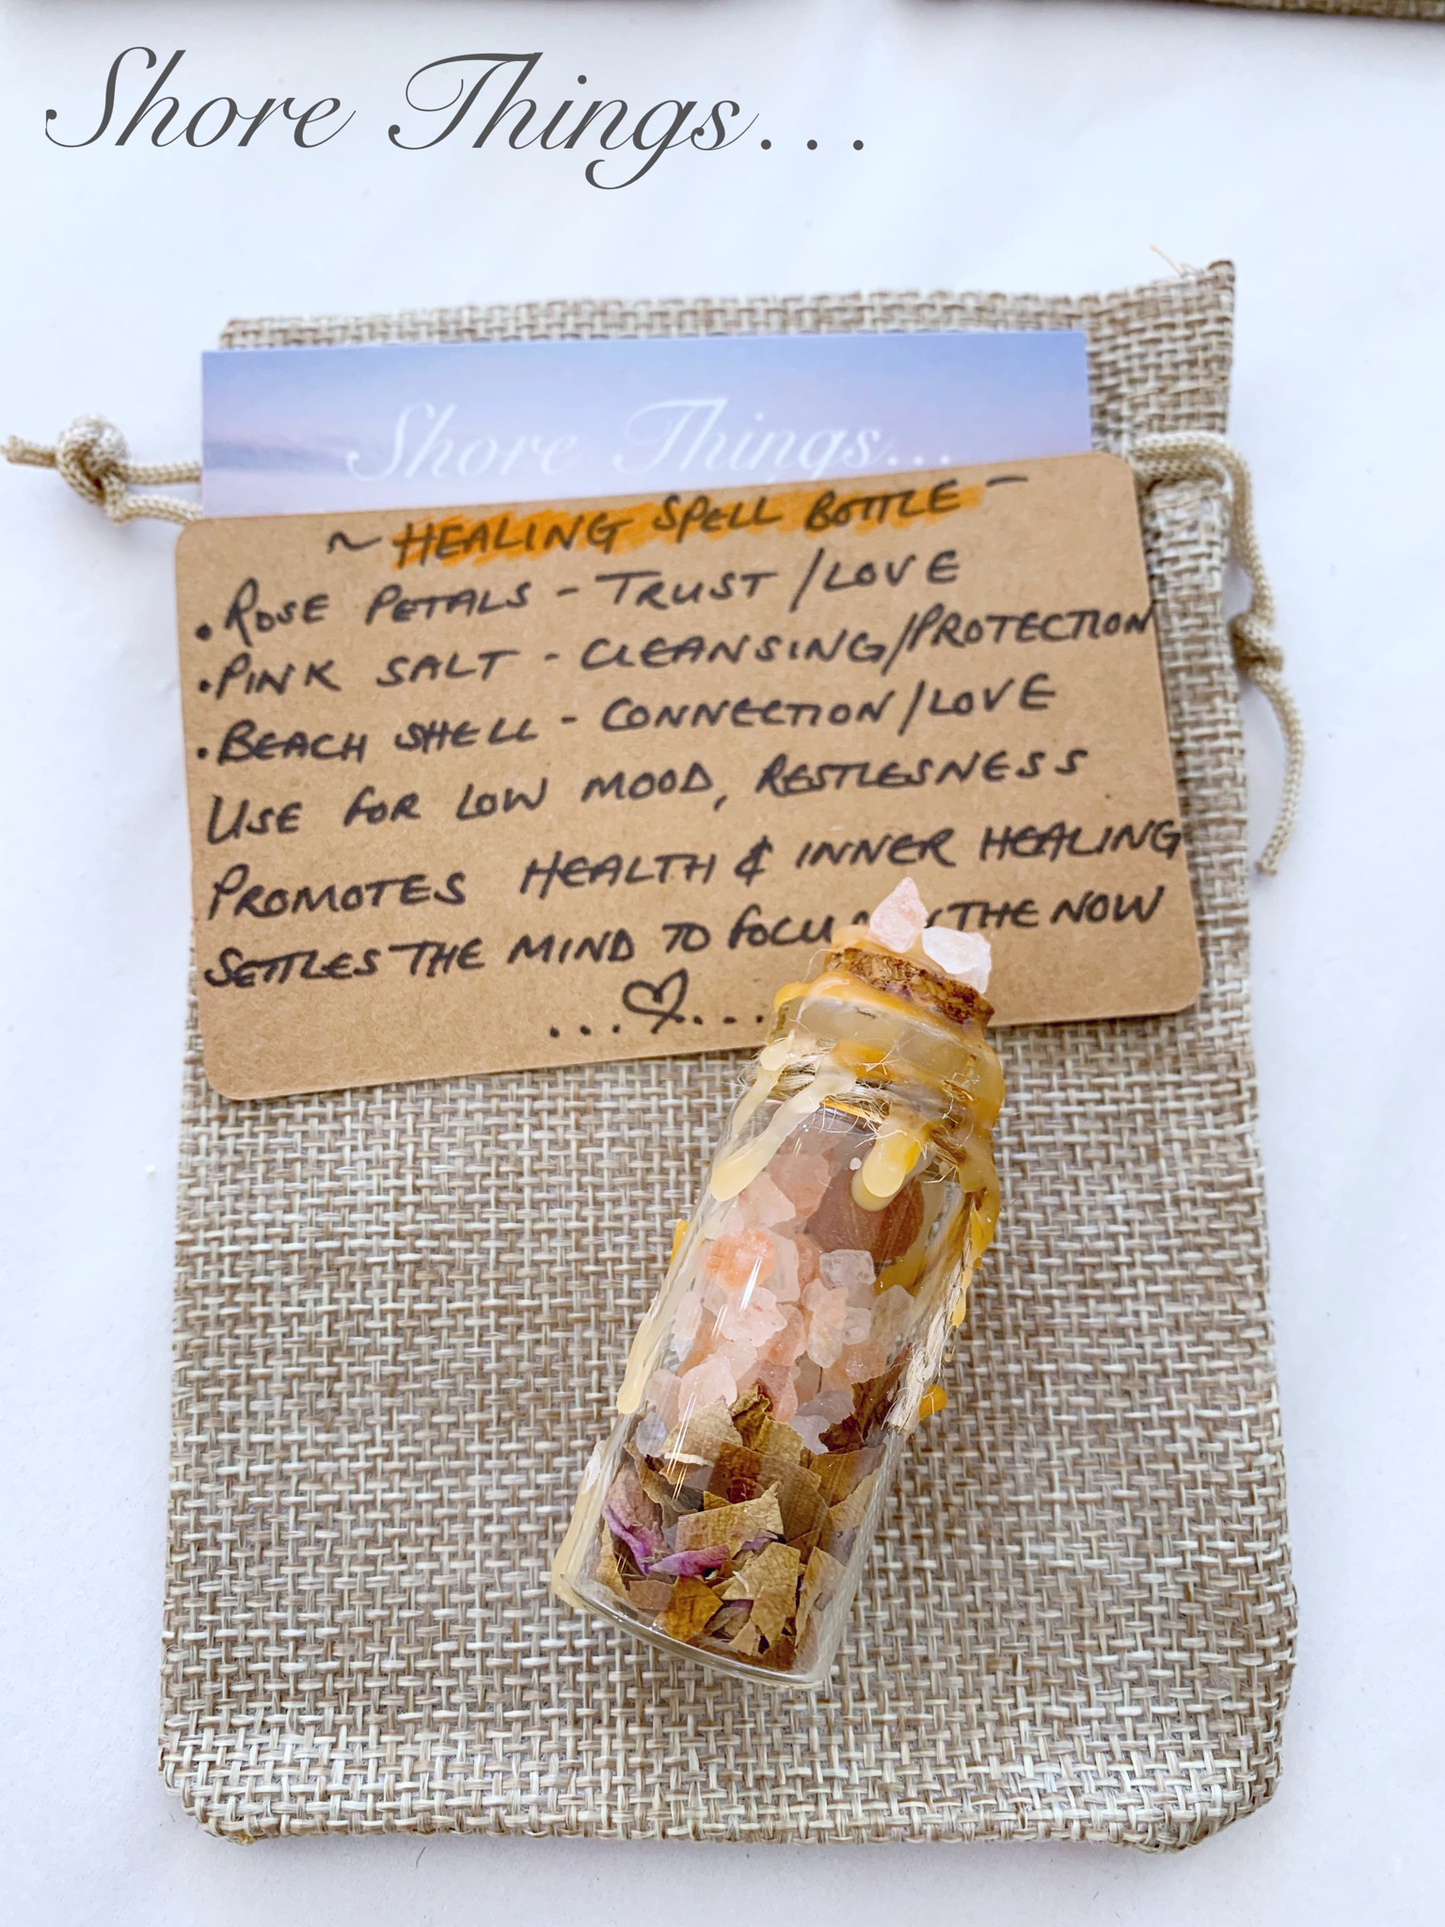 Shore Things...
Shore Things...
~ HEALING SPELL BOTTLE -
• ROSE PETALS - TRUST / LOVE
• PINK SALT - CLEANSING/PROTECTION
• BEACH SHELL - CONNECTION/LOVE
USE FOR LOW MOOD, RESTLESNESS
PROMOTES HEALTH & INNER HEALING
SETTLES THE MIND TO FOCU THE NOW
...♡...